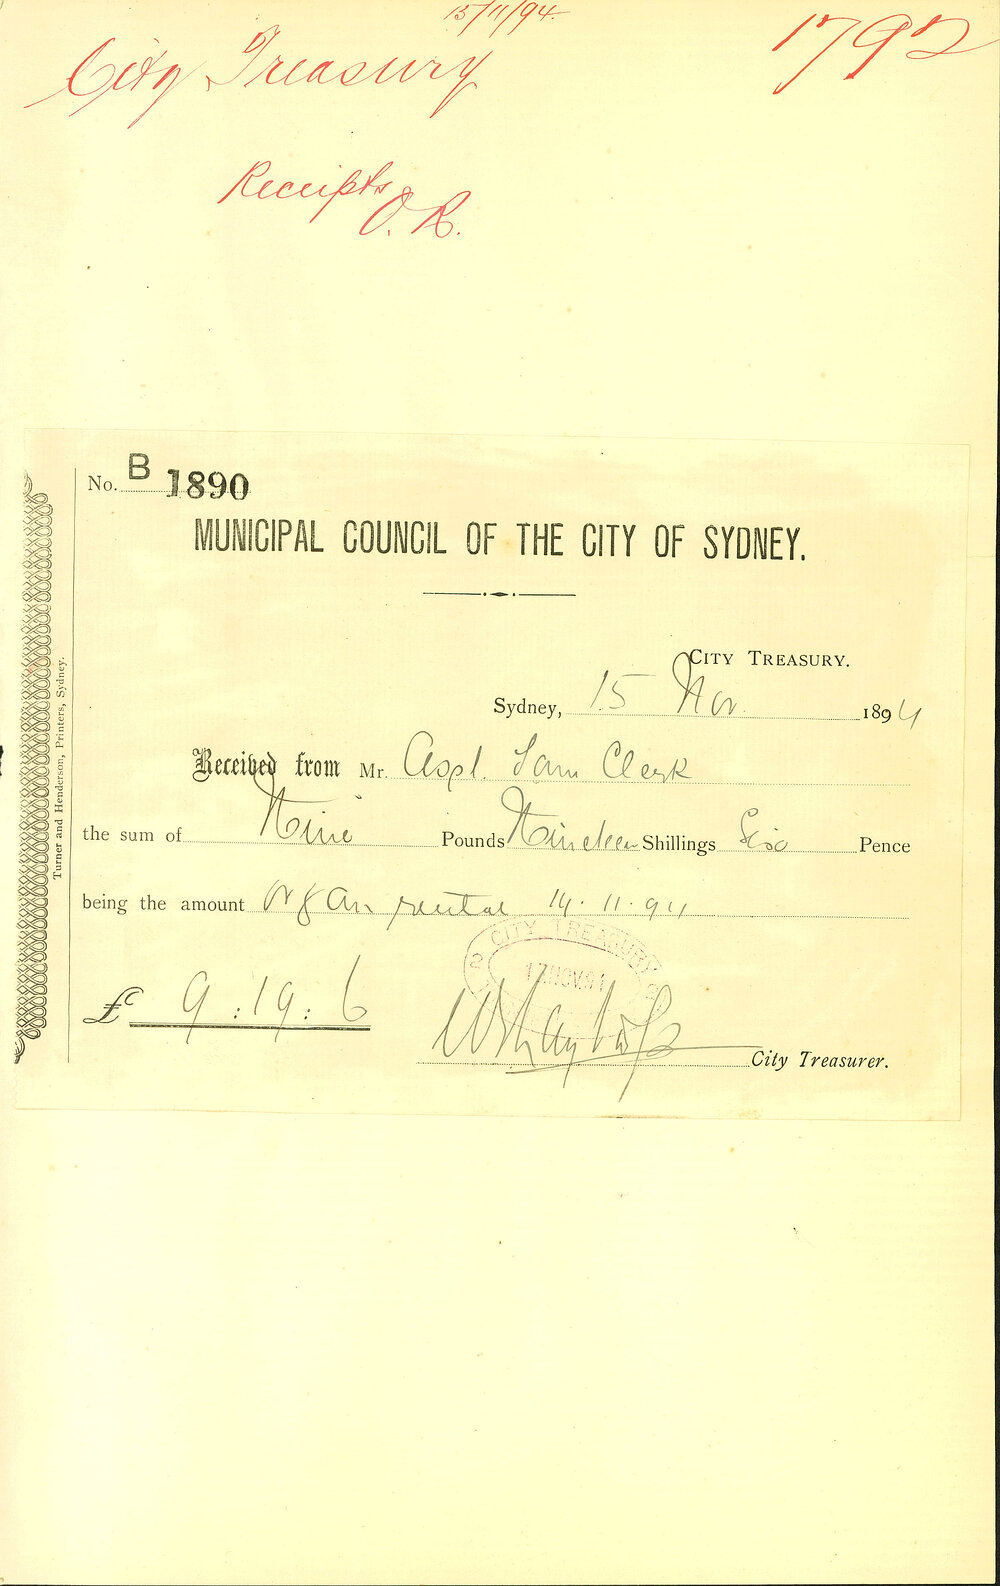 15/11/94.
City Treasury 1792
Receipts
O. R.
No. B 1890
MUNICIPAL COUNCIL OF THE CITY OF SYDNEY.
CITY TREASURY.
Sydney, 15 Nov. 1894
Received from Mr. Asst. Town Clerk
the sum of Nine Pounds Nineteen Shillings Six Pence
being the amount organ rental 14.11.94
CITY TREASURY
17.NOV.94
£ 9:19:6
City Treasurer.
Turner and Henderson, Printers, Sydney.